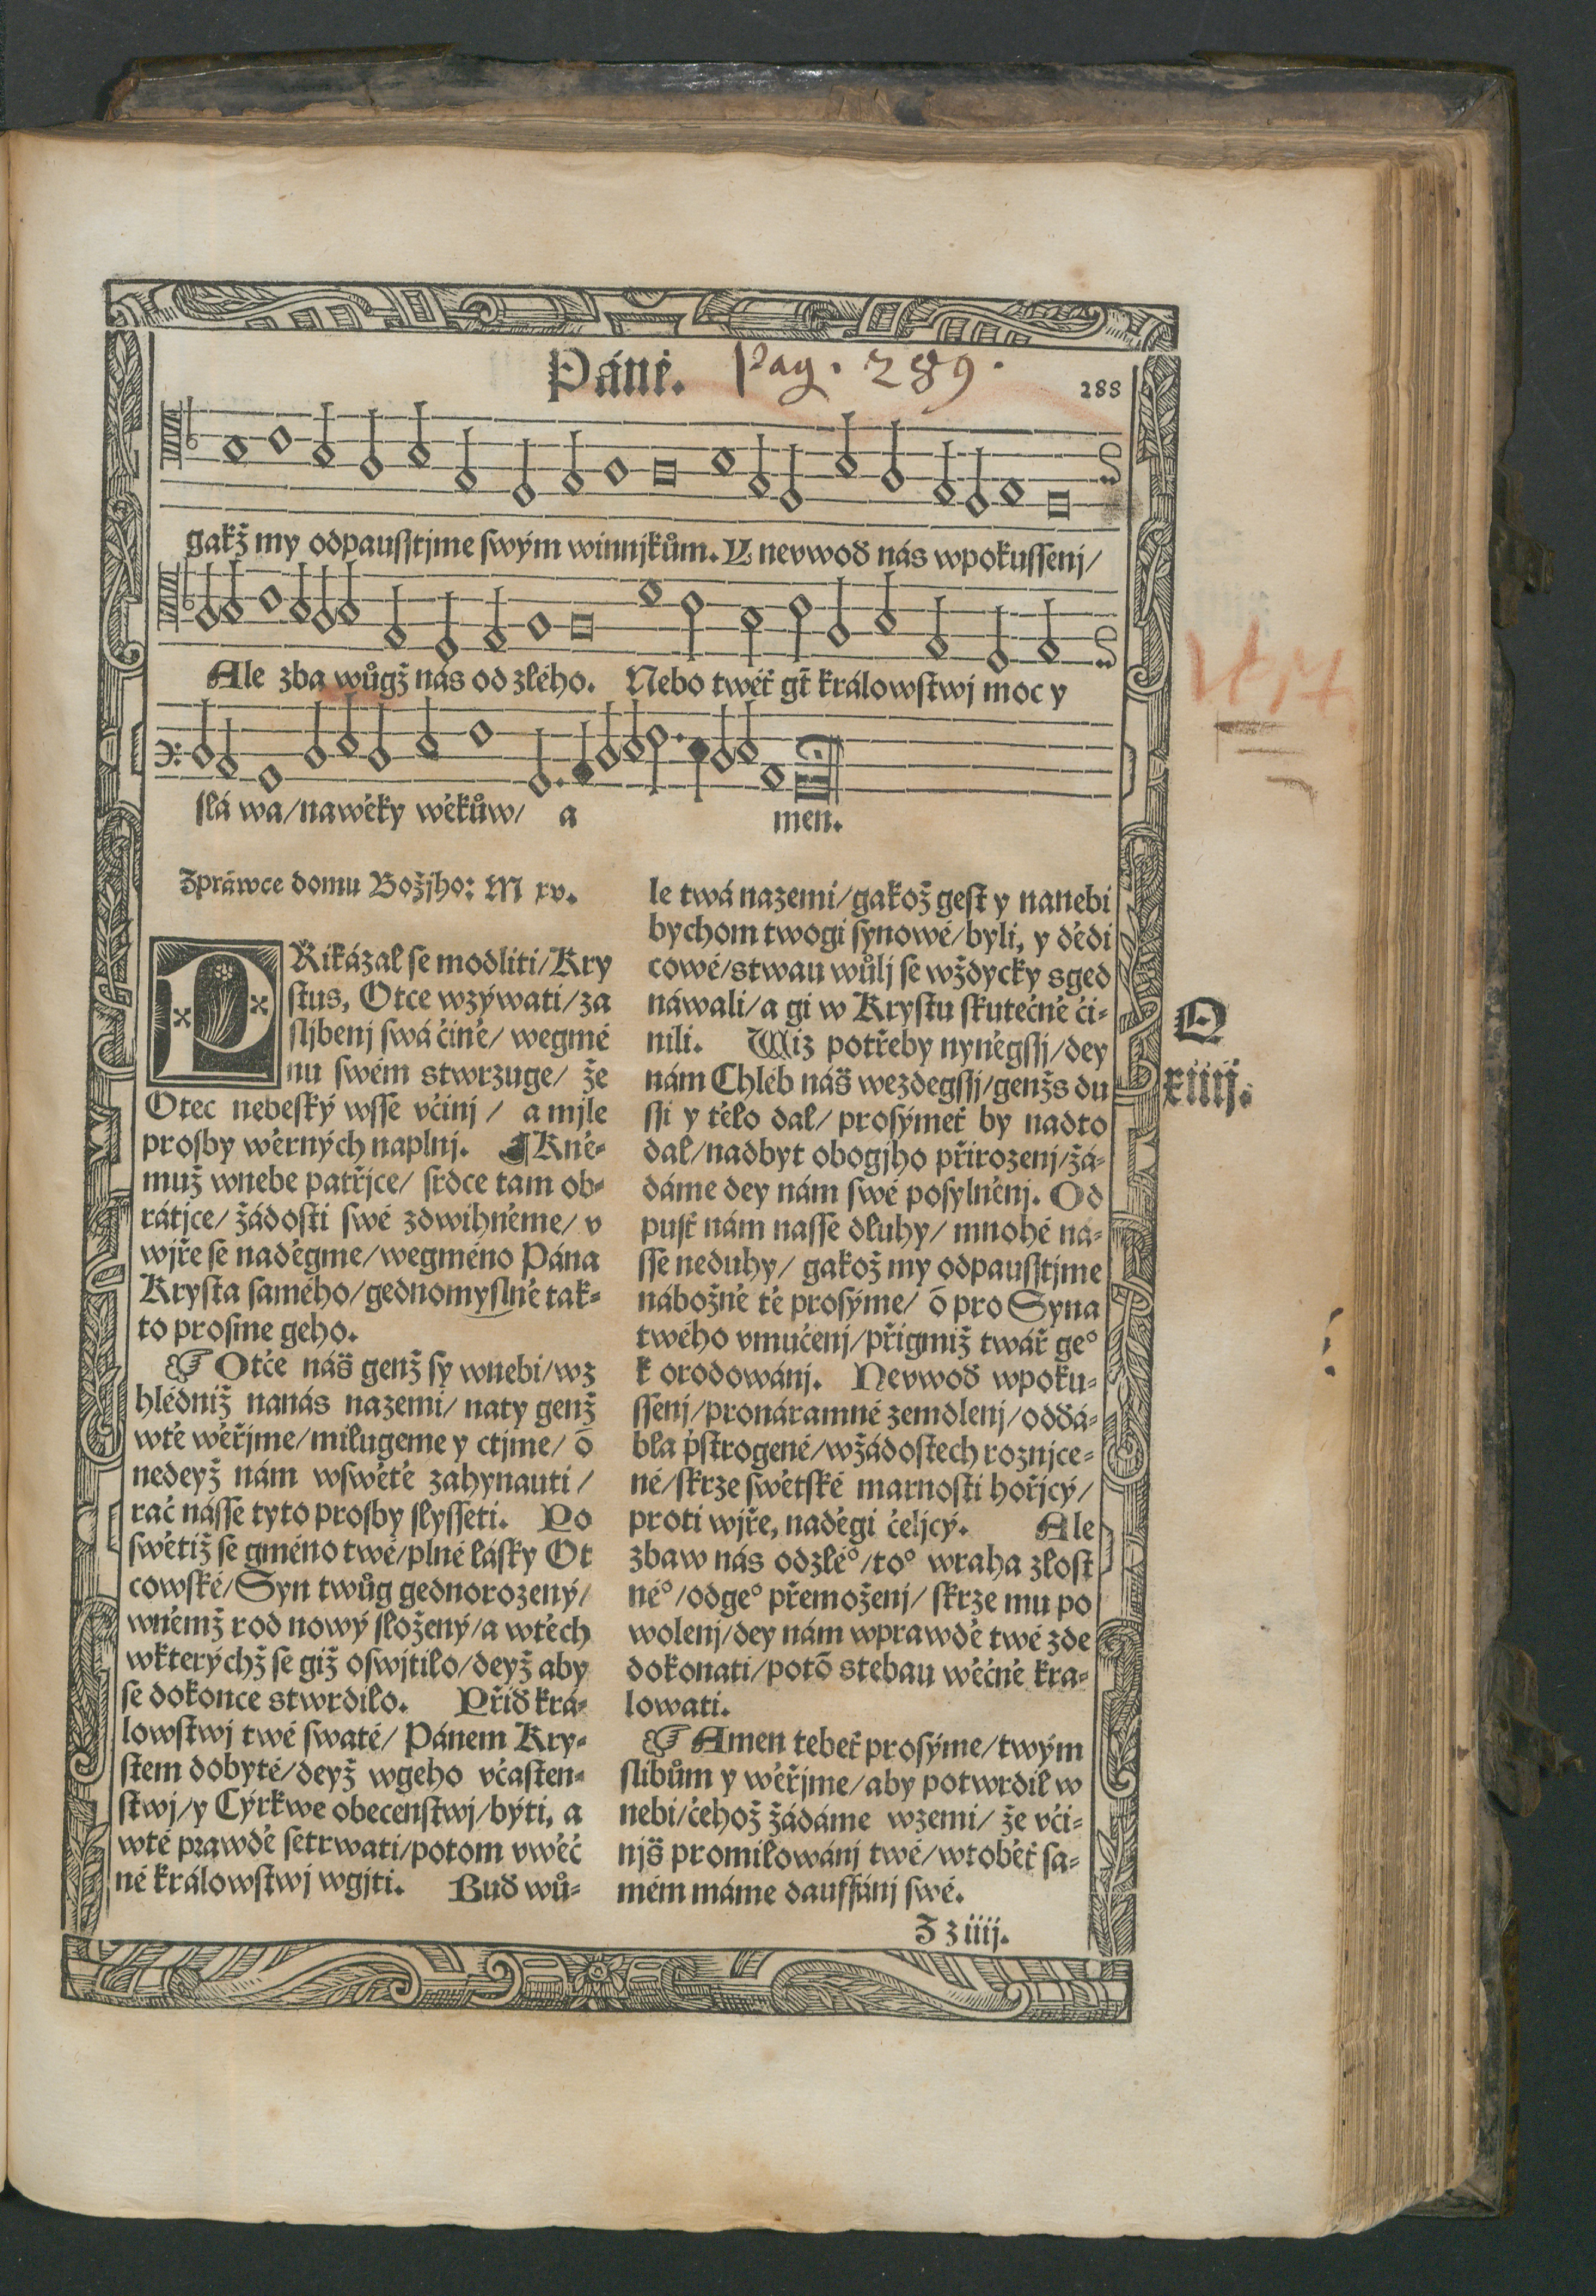 Páně. Pag. 289.
288
gakž my odpausstjme swým winnjkům. Y nevwoď nás wpokussenj/
Ale zba wůgž nás od zlého. Nebo twéť gt̄ králowstwj moc y
slá wa/nawěky wěkůw/ a men.
Zpráwce domu Božjho: M xv.
PŘikázal se modliti/Kry
stus, Otce wzýwati/za
sljbenj swá čině/ wegmé
nu swém stwrzuge/ že
Otec nebeský wsse včinj / a mjle
prosby wěrných naplnj. ¶ Kně-
muž wnebe patřjce/ srdce tam ob-
rátjce/ žádosti swé zdwihněme/ v
wjře se naděgme/wegméno Pána
Krysta samého/gednomyslně tak-
to prosme geho.
☞ Otče náš genž sy wnebi/wz
hlédniž nanás nazemi/ naty genž
wtě wěřjme/milugeme y ctjme/ ō
nedeyž nám wswětě zahynauti /
rač násse tyto prosby slysseti. Po
swětiž se gméno twé/plné lásky Ot
cowské/Syn twůg gednorozený/
wněmž rod nowý složený/a wtěch
wkterýchž se giž oswjtilo/deyž aby
se dokonce stwrdilo. Přiď krá-
lowstwj twé swaté/ Pánem Kry-
stem dobyté/deyž wgeho včasten-
stwj/y Cýrkwe obecenstwj/býti, a
wté prawdě setrwati/potom vwěč
né králowstwj wgjti. Buď wů-
le twá nazemi/gakož gest y nanebi
bychom twogi synowé/byli, y dědi
cowé/stwau wůlj se wždycky sged
náwali/a gi w Krystu skutečně či-
nili. Wiz potřeby nyněgssj/dey
nám Chléb náš wezdegssj/genžs du
ssi y tělo dal/ prosýmeť by nadto
dal/nadbyt obogjho přirozenj/žá-
dáme dey nám swé posylněnj. Od
pusť nám nasse dluhy/ mnohé ná-
sse neduhy/ gakož my odpausstjme
nábožně tě prosýme/ ō pro Syna
twého vmučenj/přigmiž twář ge°
k orodowánj. Nevwoď wpoku-
ssenj/pronáramné zemdlenj/odďá-
bla pstrogené/wžádostech roznjce-
né/skrze swětské marnosti hořjcý/
proti wjře, naděgi čeljcý. Ale
zbaw nás odzlé°/to° wraha zlost
né°/odge° přemoženj/ skrze mu po
wolenj/dey nám wprawdě twé zde
dokonati/potō stebau wěčně kra-
lowati.
☞ Amen tebeť prosýme/twým
slibům y wěřjme/aby potwrdil w
nebi/čehož žádáme wzemi/ že vči-
njš promilowánj twé/wtoběť sa-
mém máme dauffánj swé.
Z z iiij.
Q
xiiij.